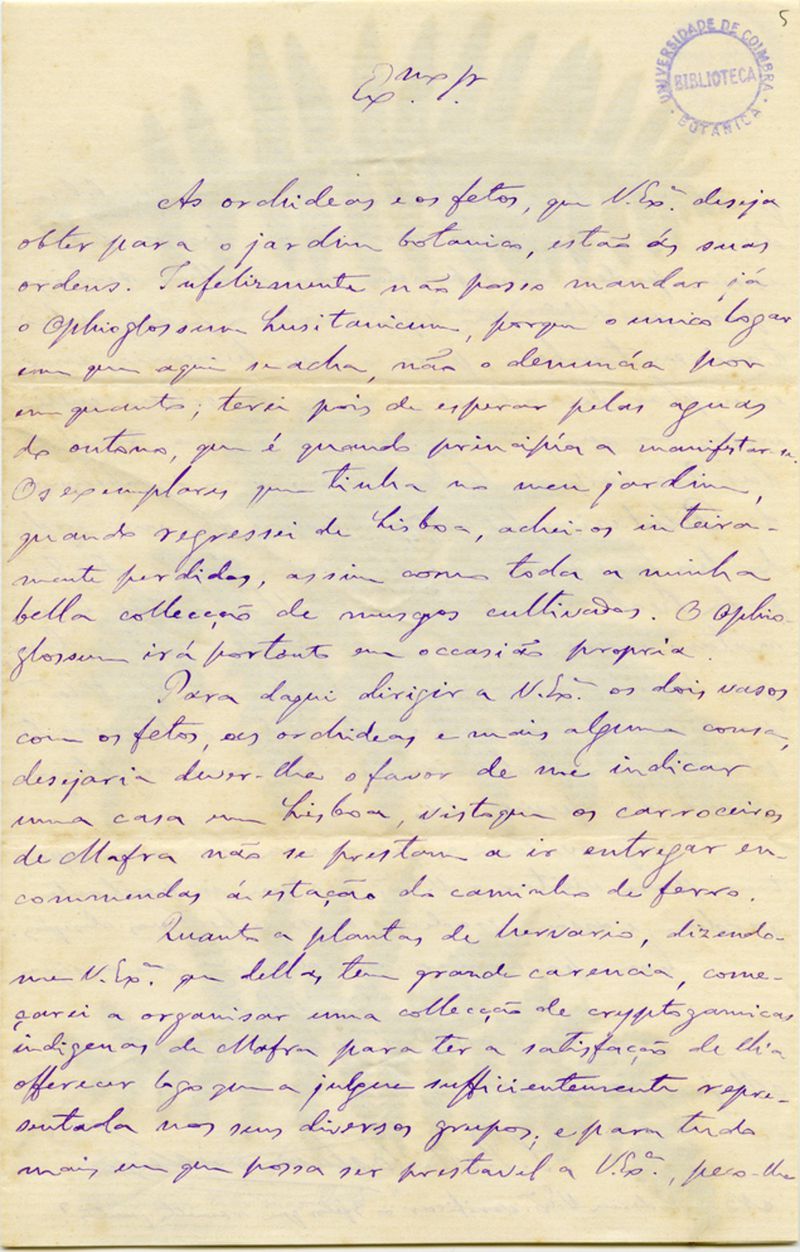 5
UNIVERSIDADE DE COIMBRA
BIBLIOTECA
BOTANICA
Ex.mo Sr.
As orchideas e os fetos, que V. Ex.ª deseja
obter para o jardim botanico, estão ás suas
ordens. Infelizmente não posso mandar já
o Ophioglossum lusitanicum, porque o unico logar
em que aqui se acha, não o denuncía por
em quanto; terei pois de esperar pelas aguas
do outono, que é quando principía a manifestar-se.
Os exemplares que tinha no meu jardim,
quando regressei de Lisboa, achei-os inteira-
mente perdidos, assim como toda a minha
bella collecção de musgos cultivados. O Ophio-
glossum irá portanto em occasião propria.
Para daqui dirigir a V. Ex.ª os dois vasos
com os fetos, as orchideas e mais alguma cousa,
desejaria dever-lhe o favor de me indicar
uma casa em Lisboa, visto que os carroceiros
de Mafra não se prestam a ir entregar en-
commendas á estação do caminho de ferro.
Quanto a plantas de hervario, dizendo-
me V. Ex.ª que dellas tem grande carencia, come-
çarei a organisar uma collecção de cryptogamicas
indigenas de Mafra para ter a satisfação de lh'a
offerecer logo que a julgue sufficientemente repre-
sentada nos seus diversos grupos; e para tudo
mais em que possa ser prestavel a V. Ex.ª, peço-lhe